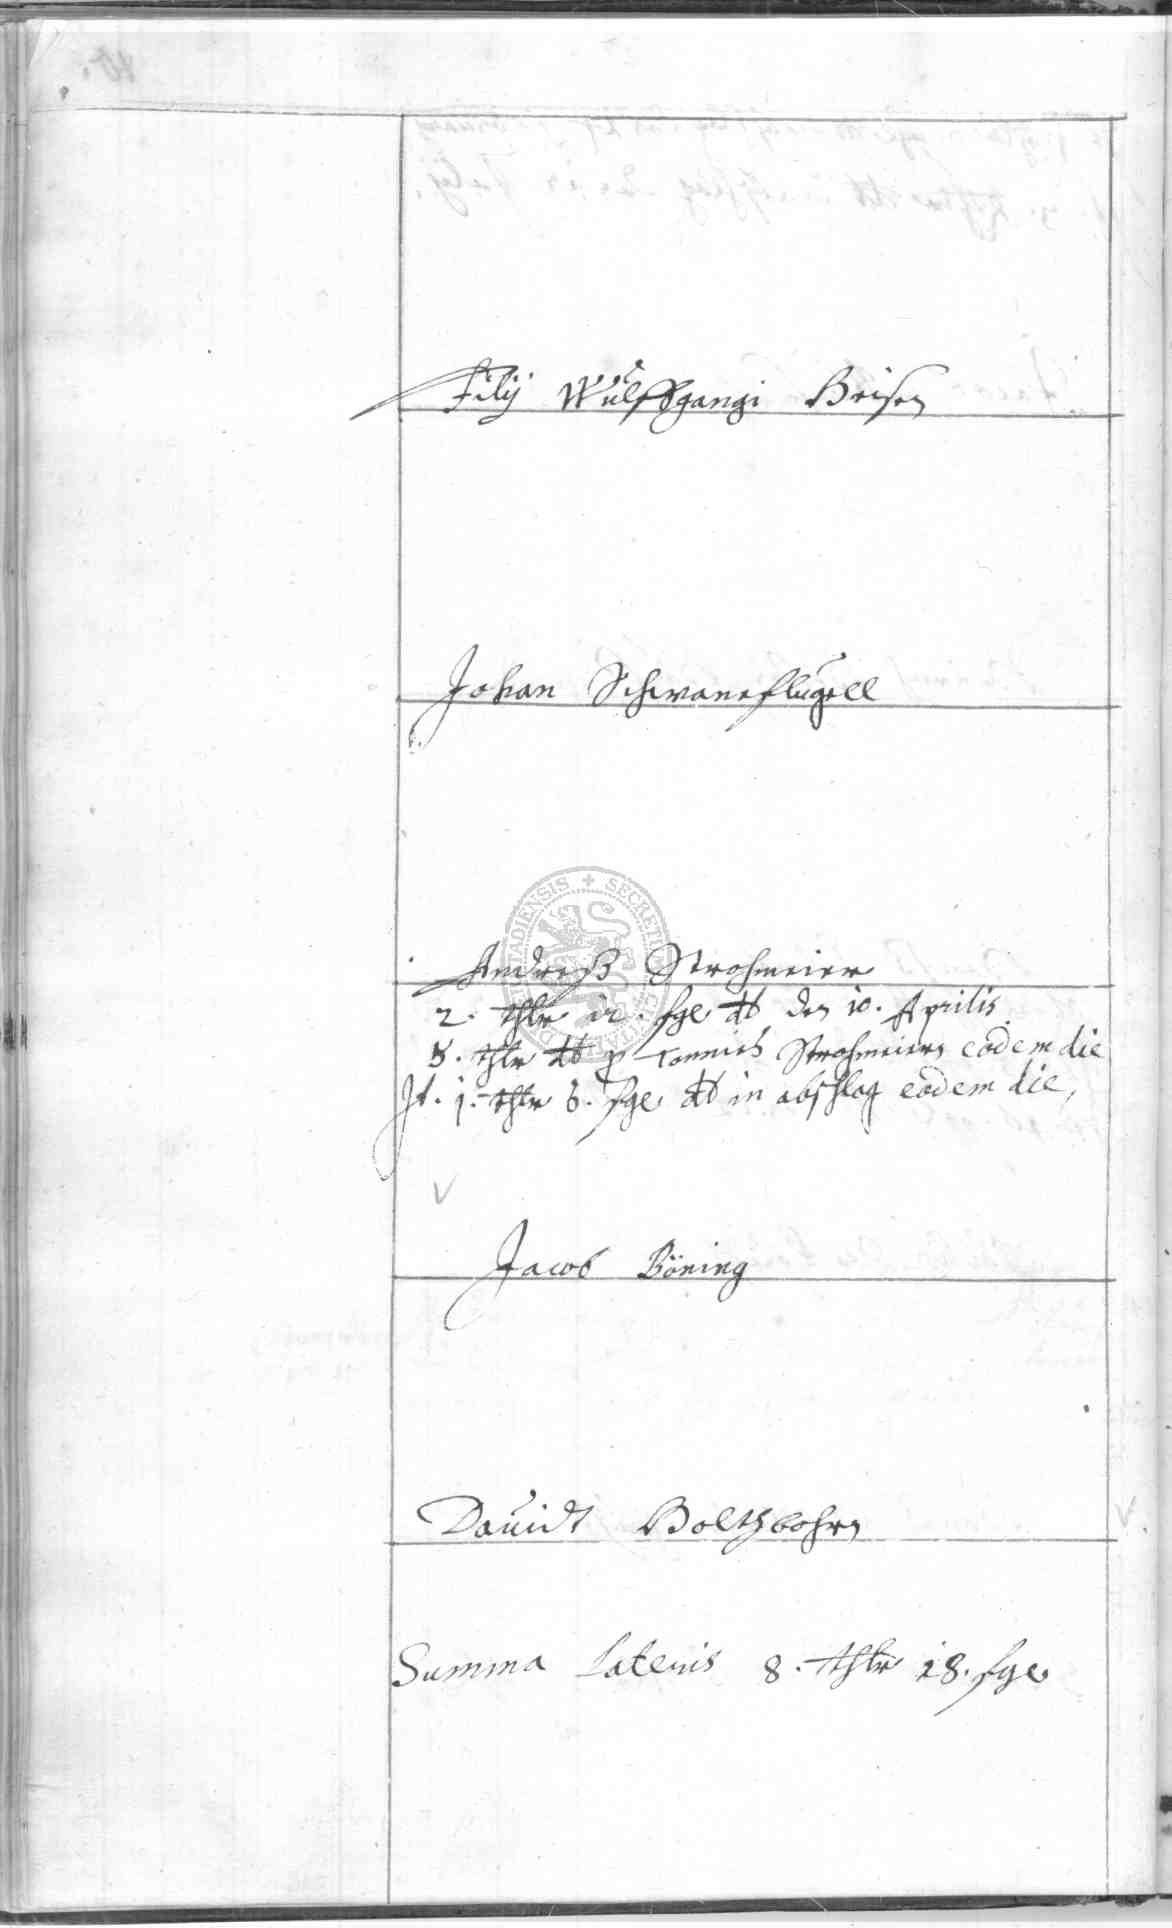 Filij Wulffgangi Brisen
Johan Schwaneflugell
Andreß Strohmeier
2. thlr 12. sgr dt den 10. Aprilis
5. thlr dt p Tonnies Strohmeiern eodem die
Jt. 1. thlr 6. sgr dt in abschlag eodem die,
Jacob Böning
Dauidt Bolthbohrn
Summa Lateris 8. thlr 18. sgr